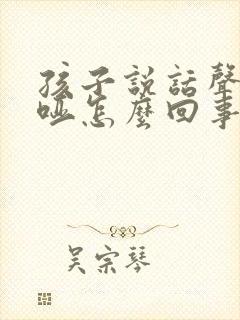 孩子説話聲
啞怎麼回事
吴宗琴